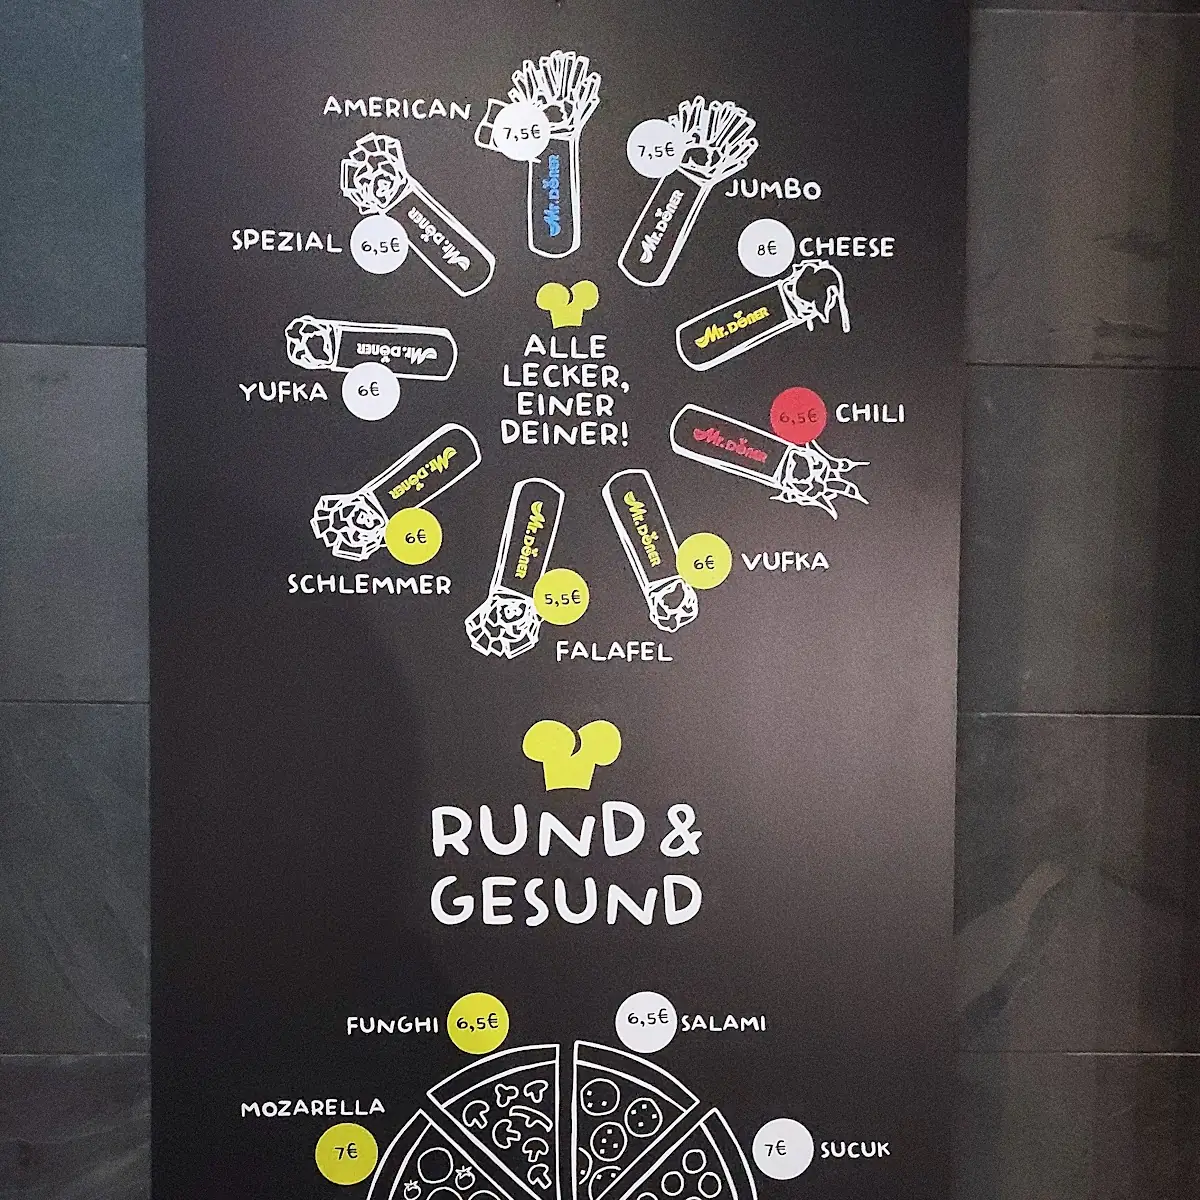 AMERICAN
7,5€
Mr. DÖNER
7,5€
JUMBO
Mr. DÖNER
SPEZIAL
6,5€
Mr. DÖNER
8€
CHEESE
Mr. DÖNER
ALLE
LECKER,
EINER
DEINER!
YUFKA
6€
Mr. DÖNER
6,5€
CHILI
Mr. DÖNER
SCHLEMMER
6€
Mr. DÖNER
Mr. DÖNER
5,5€
FALAFEL
Mr. DÖNER
6€
VUFKA
RUND &
GESUND
FUNGHI
6,5€
6,5€
SALAMI
MOZARELLA
7€
7€
SUCUK